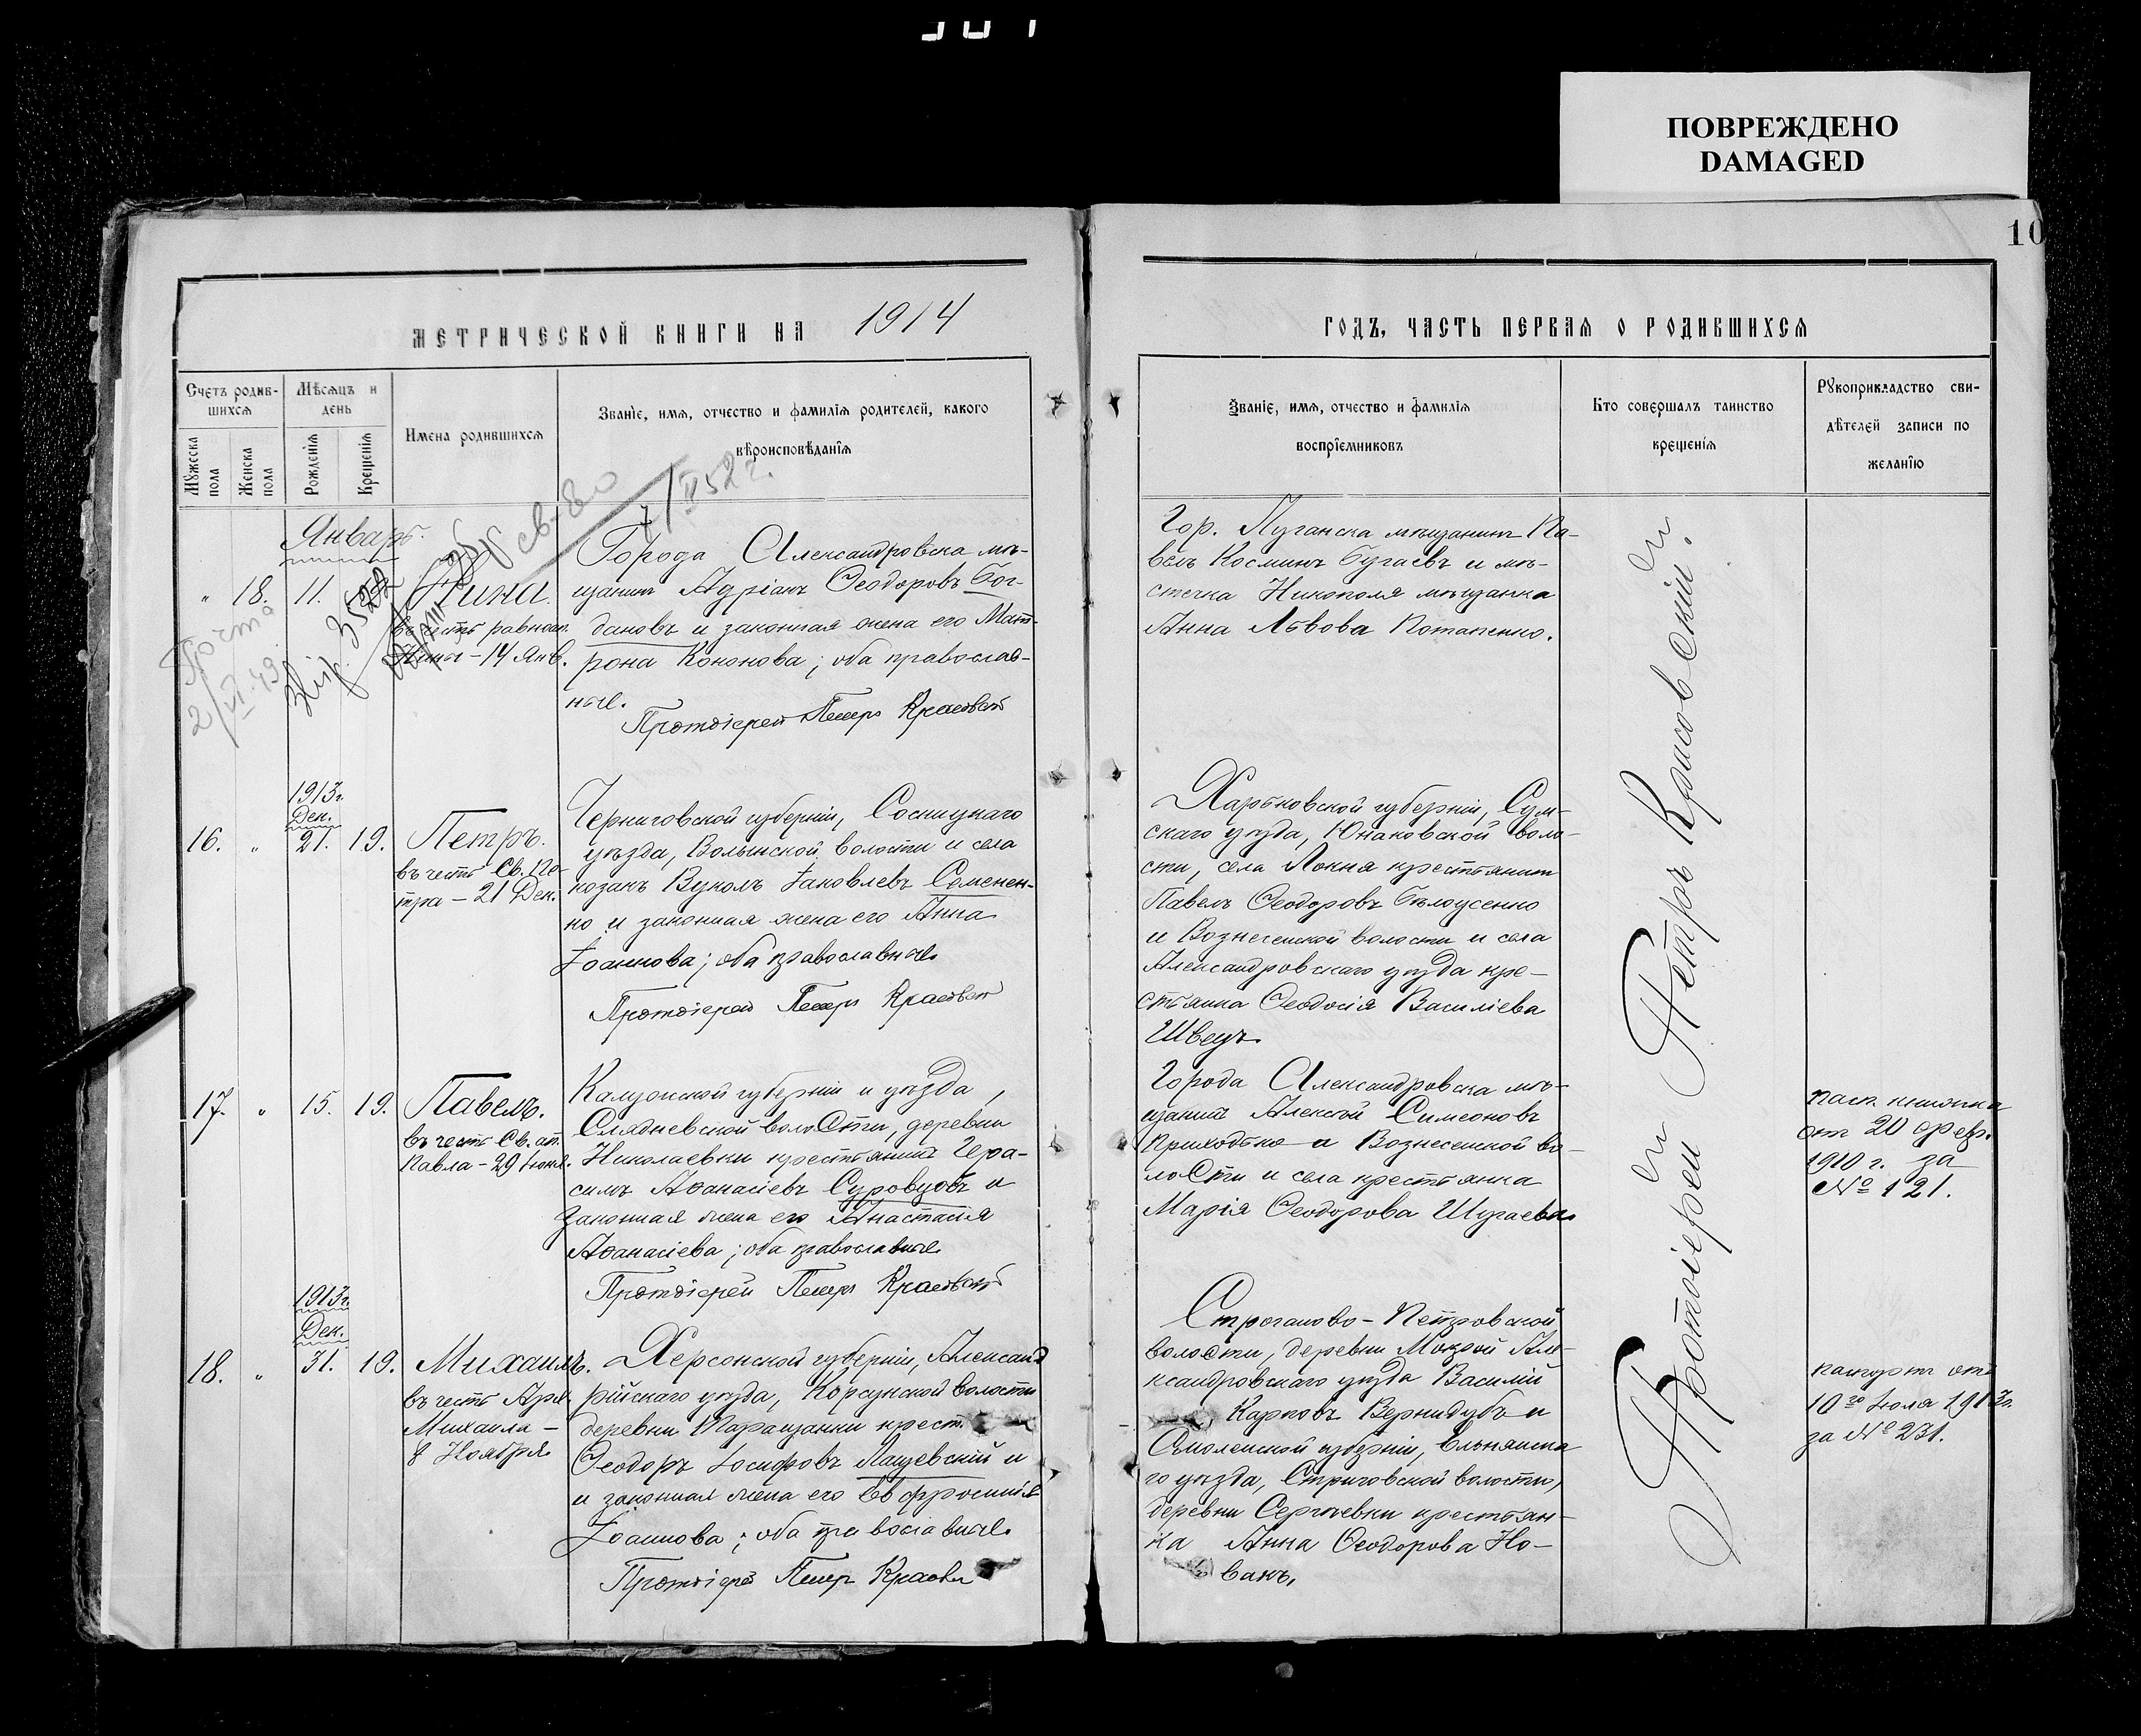 ПОВРЕЖДЕНО
DAMAGED
10
МЕТРИЧЕСКОЙ КНИГИ НА 1914
ГОДЪ, ЧАСТЬ ПЕРВАЯ О РОДИВШИХСЯ
Счетъ родив-
шихся
Мужеска
пола
Женска
пола
Мѣсяцъ и
день
Рожденія
Крещенія
Имена родившихся
Званіе, имя, отчество и фамилія родителей, какого
вѣроисповѣданія
Званіе, имя, отчество и фамилія
воспріемниковъ
Кто совершалъ таинство
крещенія
Рукоприкладство сви-
дѣтелей записи по
желанію
Январь.
" 18. 11.
Нина.
въ честь равноап.
Нины - 14 Янв.
Города Александровска мѣ-
щанинъ Адріанъ Ѳеодоровъ Бог-
дановъ и законная жена его Мат-
рона Кононова; оба православ-
ные.
Протоіерей Петръ Красовскій
Гор. Луганска мѣщанинъ Па-
велъ Косминъ Бугаевъ и мѣ-
стечка Никополя мѣщанка
Анна Львова Потапенко.
2/VI-49.
1913г.
Дек.
16. " 21. 19.
Петръ.
въ честь Св. Пе-
тра - 21 Дек.
Черниговской губерніи, Сосницкаго
уѣзда, Волынской волости и села
козакъ Вуколъ Іаковлевъ Семенен-
ко и законная жена его Анна
Іоаннова; оба православные.
Протоіерей Петръ Красовскій
Харьковской губерніи, Сум-
скаго уѣзда, Юнаковской воло-
сти, села Локня крестьянинъ
Павелъ Ѳеодоровъ Бѣлоусенко
и Вознесенской волости и села
Александровскаго уѣзда кре-
стьянка Ѳеодосія Василіева
Швецъ.
17. " 15. 19.
Павелъ.
въ честь Св. ап.
Павла - 29 Іюня.
Калужской губерніи и уѣзда,
Слядневской волости, деревни
Николаевки крестьянинъ Гера-
симъ Аѳанасіевъ Суровцовъ и
законная жена его Анастасія
Аѳанасіева; оба православные.
Протоіерей Петръ Красовскій
Города Александровска мѣ-
щанинъ Алексѣй Симеоновъ
Приходько и Вознесенской во-
лости и села крестьянка
Марія Ѳеодорова Шугаева.
пасп. книжка
от 20 февр.
1910 г. за
№ 121.
1913г.
Дек.
18. " 31. 19.
Михаилъ.
въ честь Арх.
Михаила -
8 Ноября.
Херсонской губерніи, Александ
рійскаго уѣзда, Корсунской волости
деревни крест.
Ѳеодоръ Іосифовъ Лащевскій и
и законная жена его Евфросинія
Іоаннова; оба православные.
Протоіерей Петръ Красовск
Строганово-Петровской
волости, деревни Мокрой Але-
ксандровскаго уѣзда Василій
Карповъ Вернидубъ и
Смоленской губерніи, Ельнинска
го уѣзда, Стриговской волости,
деревни Сергѣевки крестьян-
ка Анна Ѳеодорова Но-
вакъ.
паспортъ отъ
10го Іюля 1913г.
за № 231.
Протоіерей Петръ Красовскій.